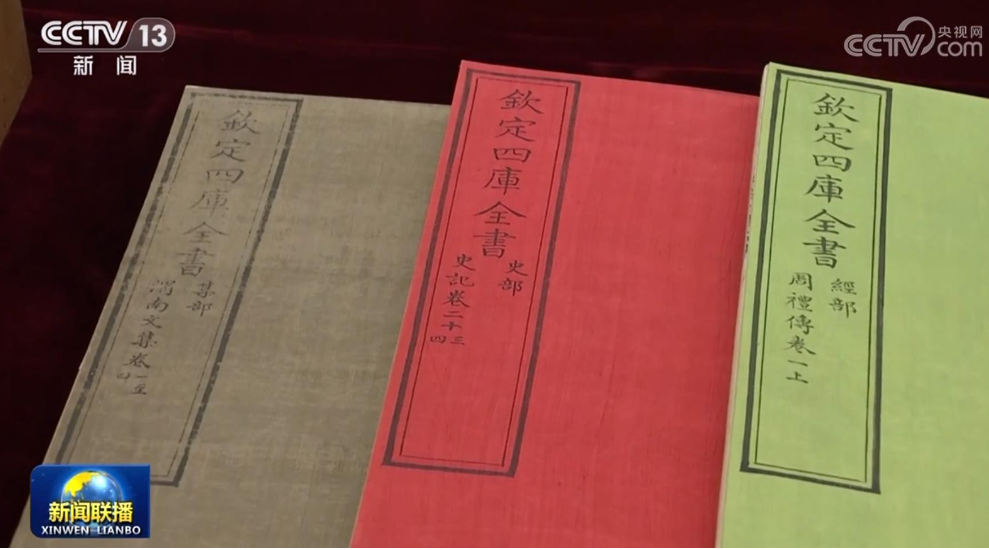 CCTV 13
新闻
央视网
CCTV.com
欽定四庫全書
集部
渭南文集卷一至
欽定四庫全書
史部
史記卷二十三
四
欽定四庫全書
經部
周禮傳卷一上
新闻联播
XINWEN-LIANBO